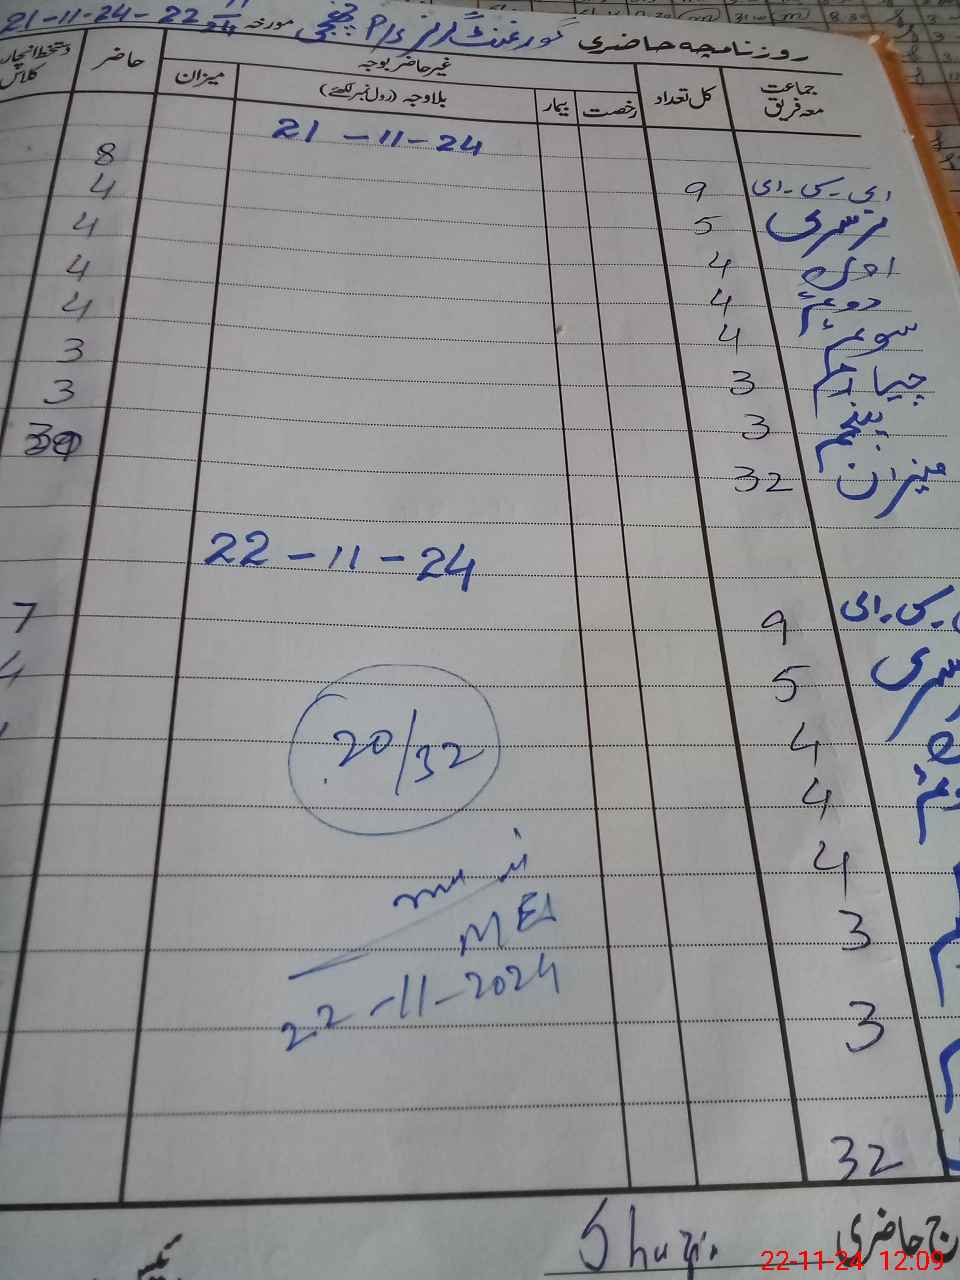 روزنامچہ حاضری گورنمنٹ گرلز P/S مورخہ 21-11-24 - 22-11-24
جماعت معہ فریق کل تعداد غیر حاضر بوجہ حاضر
رخصت بیمار بلاوجہ (رول نمبر لکھئے) میزان
21-11-24
ای-سی-ای 9 8
نرسری 5 4
اول 4 4
دوئم 4 4
سوئم 4 4
چہارم 3 3
پنجم 3 3
میزان 32
22-11-24
سی-ای 9 7
سری 5 4
4
4
4
3
20/32
MEA
22-11-2024
3
32
حاضری
22-11-24 12:09